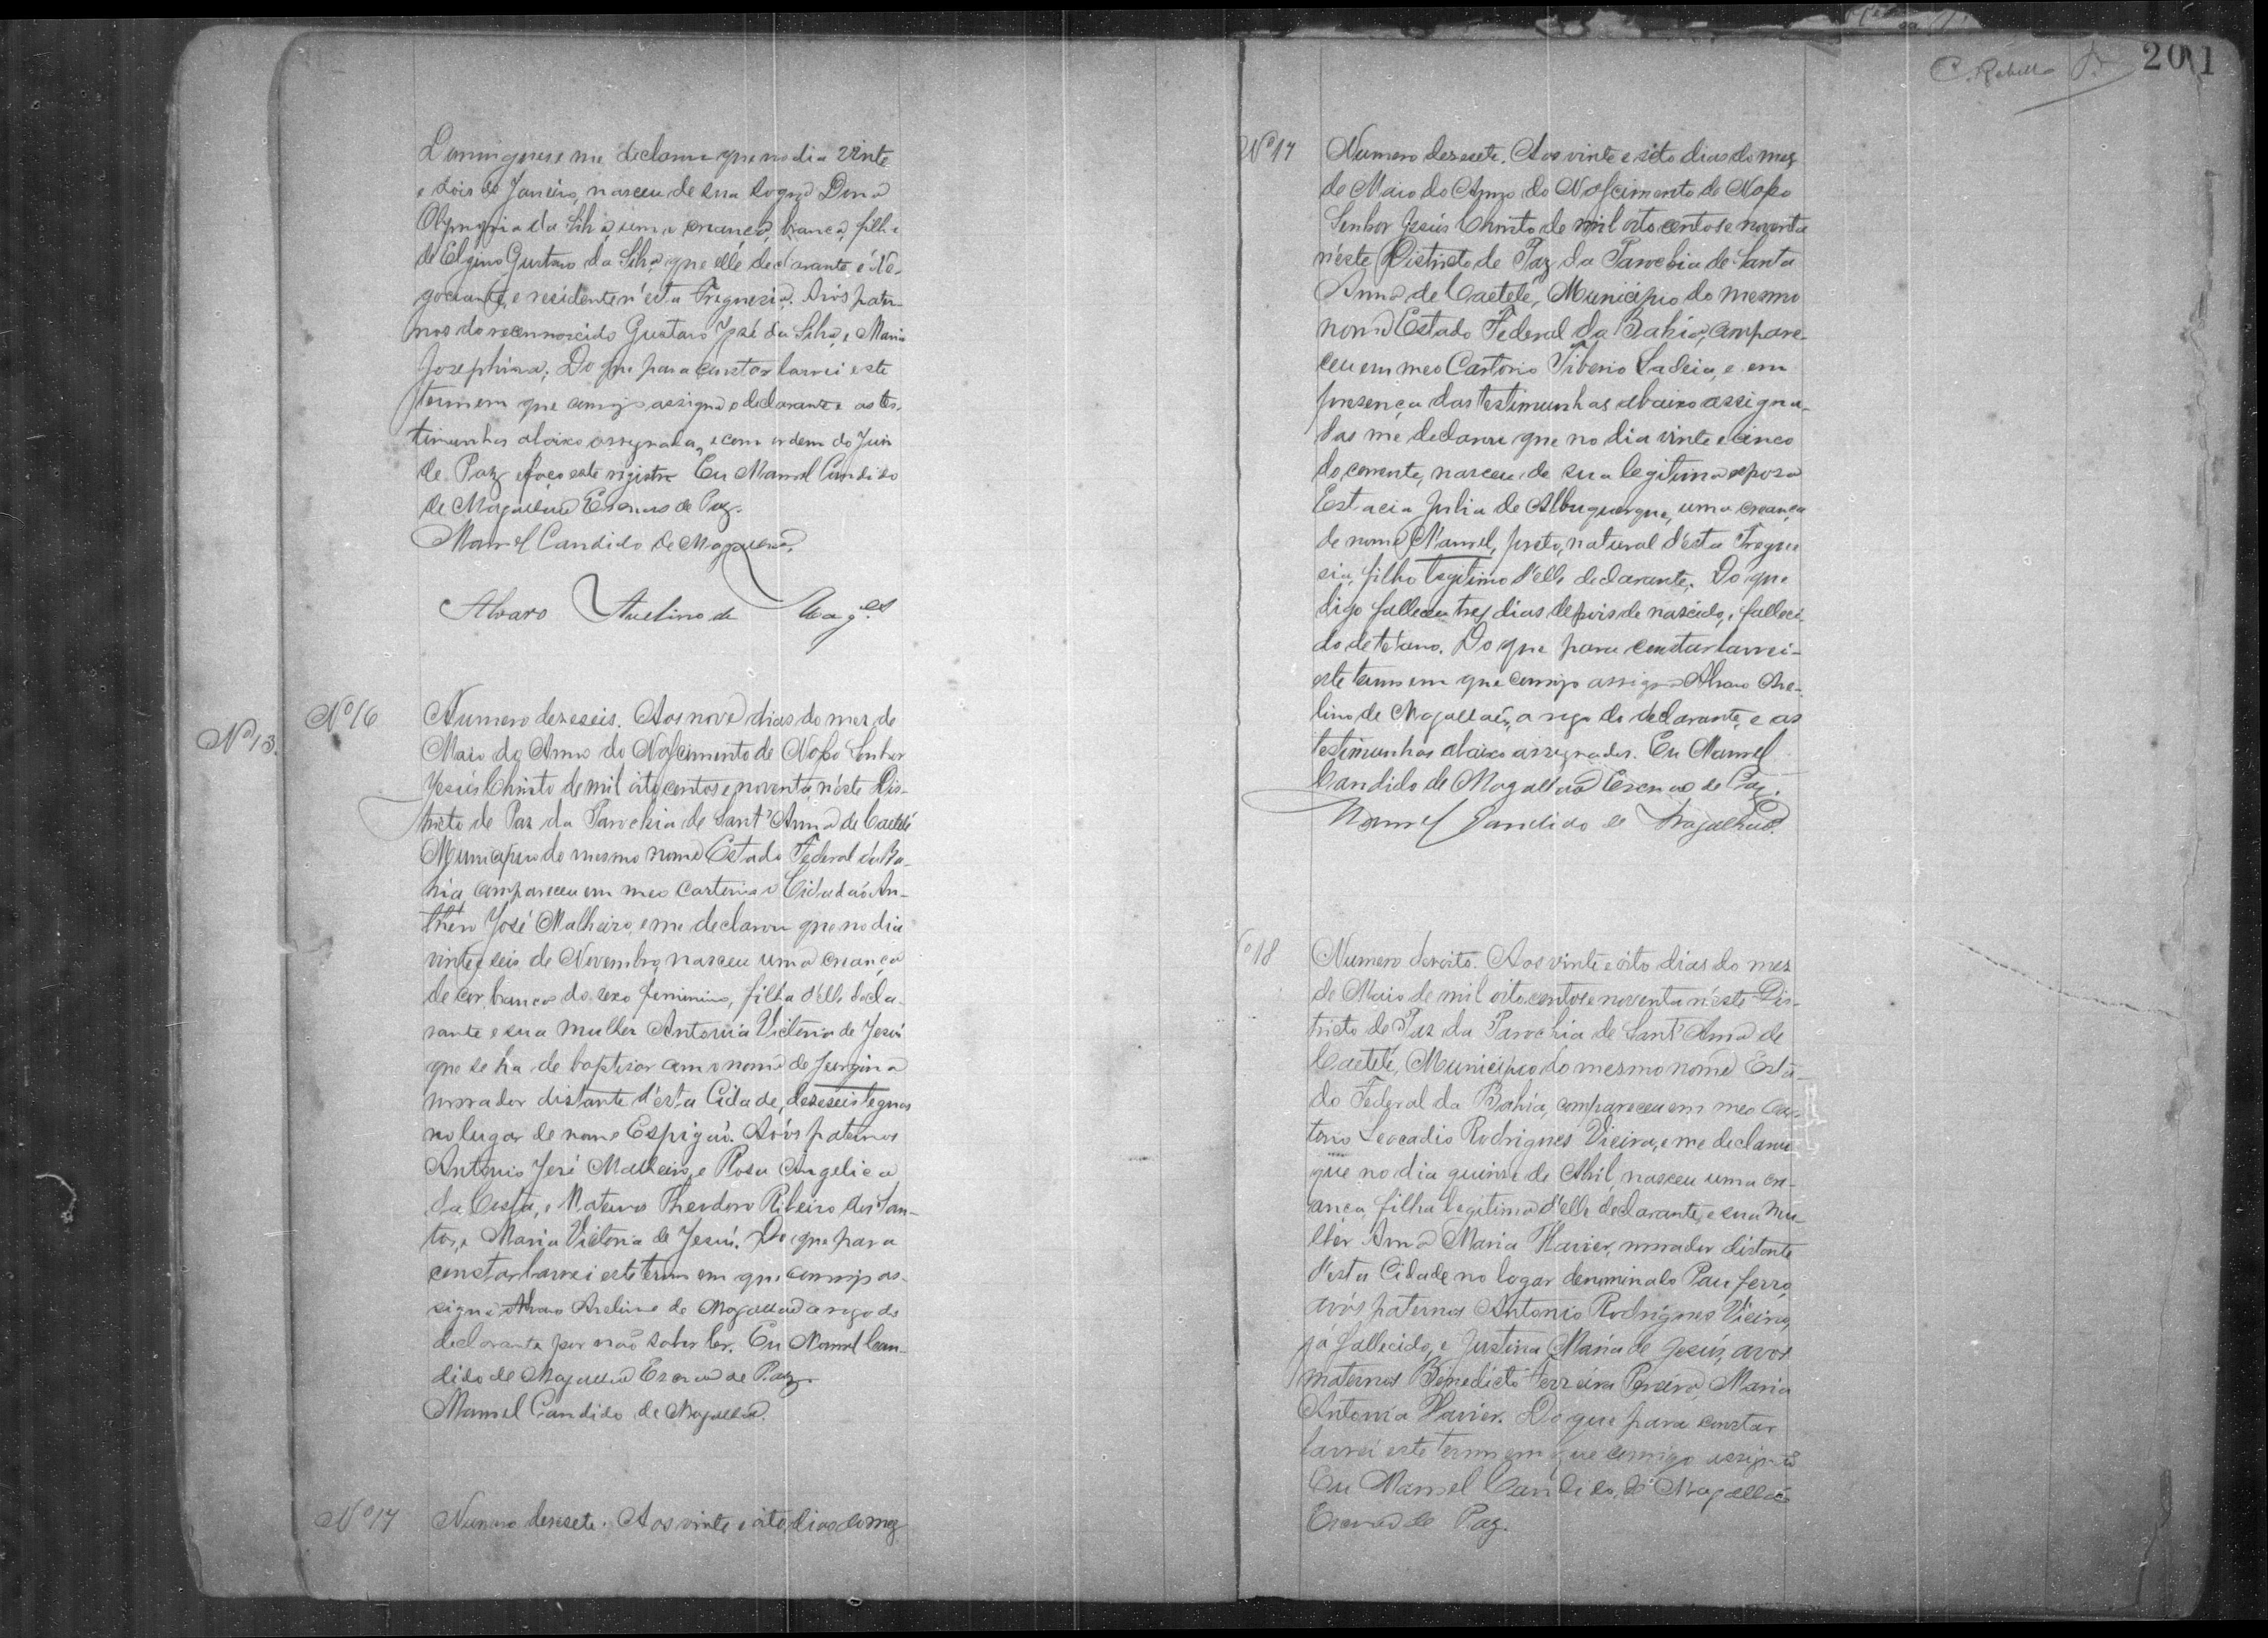 C. Rebello
201
Domingues e me declarou que no dia vinte
e dois de Janeiro, nasceu de sua sogra Dona
da Silva, uma creança, branca, filha
de Elgino Gustavo da Silva, que elle declarante é Ne-
gociante, e residente n'esta Freguesia. Avós pater-
nos do recemnascido Gustavo José da Silva, e Maria
Josephina. Do que para constar lavrei este
termo em que comigo assigna o declarante e as tes-
timunhas abaixo assignada, e com ordem do Juiz
de Paz e faço este registro Eu Manoel Candido
de Magalhães Escrivão de Paz.
Manoel Candido de Magalhães.
Alvaro Avelino de Mag.es
Nº 13.
Nº 16
Numero deseseis. Aos nove dias do mez de
Maio do Anno do Nascimento de Nosso Senhor
Jesús Christo de mil oito centos e noventa, néste Dis-
tricto de Paz da Parochia de Sant'Anna de Caeteté
Municipio do mesmo nome Estado Federal da Ba-
hia compareceu em meo Cartorio o Cidadaõ An-
thero José Malheiro, e me declarou que no dia
vinte e seis de Novembro, nasceu uma creança
de cor branca do sexo feminino, filha d'elle decla-
rante e sua mulher Antonia Victoria de Jesús
que se ha de baptisar com o nome de Jurgina
morador distante d'esta Cidade, deseseis legoas
no lugar de nome Espigaõ. Avós paternos
Antonio José Malheiro, e Rosa Angelica
da Costa, e Maternos Theodoro Ribeiro dos San-
tos, e Maria Victoria de Jesús. Do que para
constar lavrei este termo em que comigo as-
signa Alvaro Avelino de Magalhães a rogo do
declarante por naõ saber ler. Eu Manoel Can-
dido de Magalhães Escrivão de Paz.
Manoel Candido de Magalhães.
Nº 17
Numero desesete. Aos vinte e oito dias do mez
Nº 17
Numero desesete. Aos vinte e oito dias do mez
de Maio do Anno do Nascimento de Nosso
Senhor Jesús Christo de mil oito centos e noventa
néste Districto de Paz da Parochia de Santa
Anna de Caeteté, Municipio do mesmo
nome Estado Federal da Bahia, compare-
ceu em meo Cartorio Tiberio Ladeia, e em
presença das testimunhas abaixo assigna-
das me declarou que no dia vinte e cinco
do corrente, nasceu de sua legitima esposa
Estacia Julia de Albuquerque, uma creança
de nome Manoel, preto, natural d'esta Fregue
sia, filho legitimo d'elle declarante. Do que
digo falleceu tres dias depois de nascido, falleci-
do de tetano. Do que para constar lavrei-
este termo em que comigo assigna Alvaro Ave-
lino de Magalhães, a rogo do declarante, e as
testimunhas abaixo assignadas. Eu Manoel
Candido de Magalhães Escrivão de Paz.
Manoel Candido de Magalhães.
Nº 18
Numero desoito. Aos vinte e oito dias do mez
de Maio de mil oito centos e noventa néste Dis-
tricto de Paz da Parochia de Sant'Anna de
Caeteté, Municipio do mesmo nome Esta-
do Federal da Bahia, compareceu em meo Car-
torio Leocadio Rodrigues Vieira, e me declarou
que no dia quinze de Abril, nasceu uma cre-
ança, filha legitima d'elle declarante, e sua mu-
lher Anna Maria Xavier, morador distante
d'esta Cidade no logar denominado Pau ferro,
avós paternos Antonio Rodrigues Vieira,
já fallecido, e Justina Maria de Jesús, avós
maternos Benedicto Ferreira Pereira, Maria
Antonia Xavier. Do que para constar
lavrei este termo em que comigo assigna
Eu Manoel Candido de Magalhães
Escrivão de Paz.